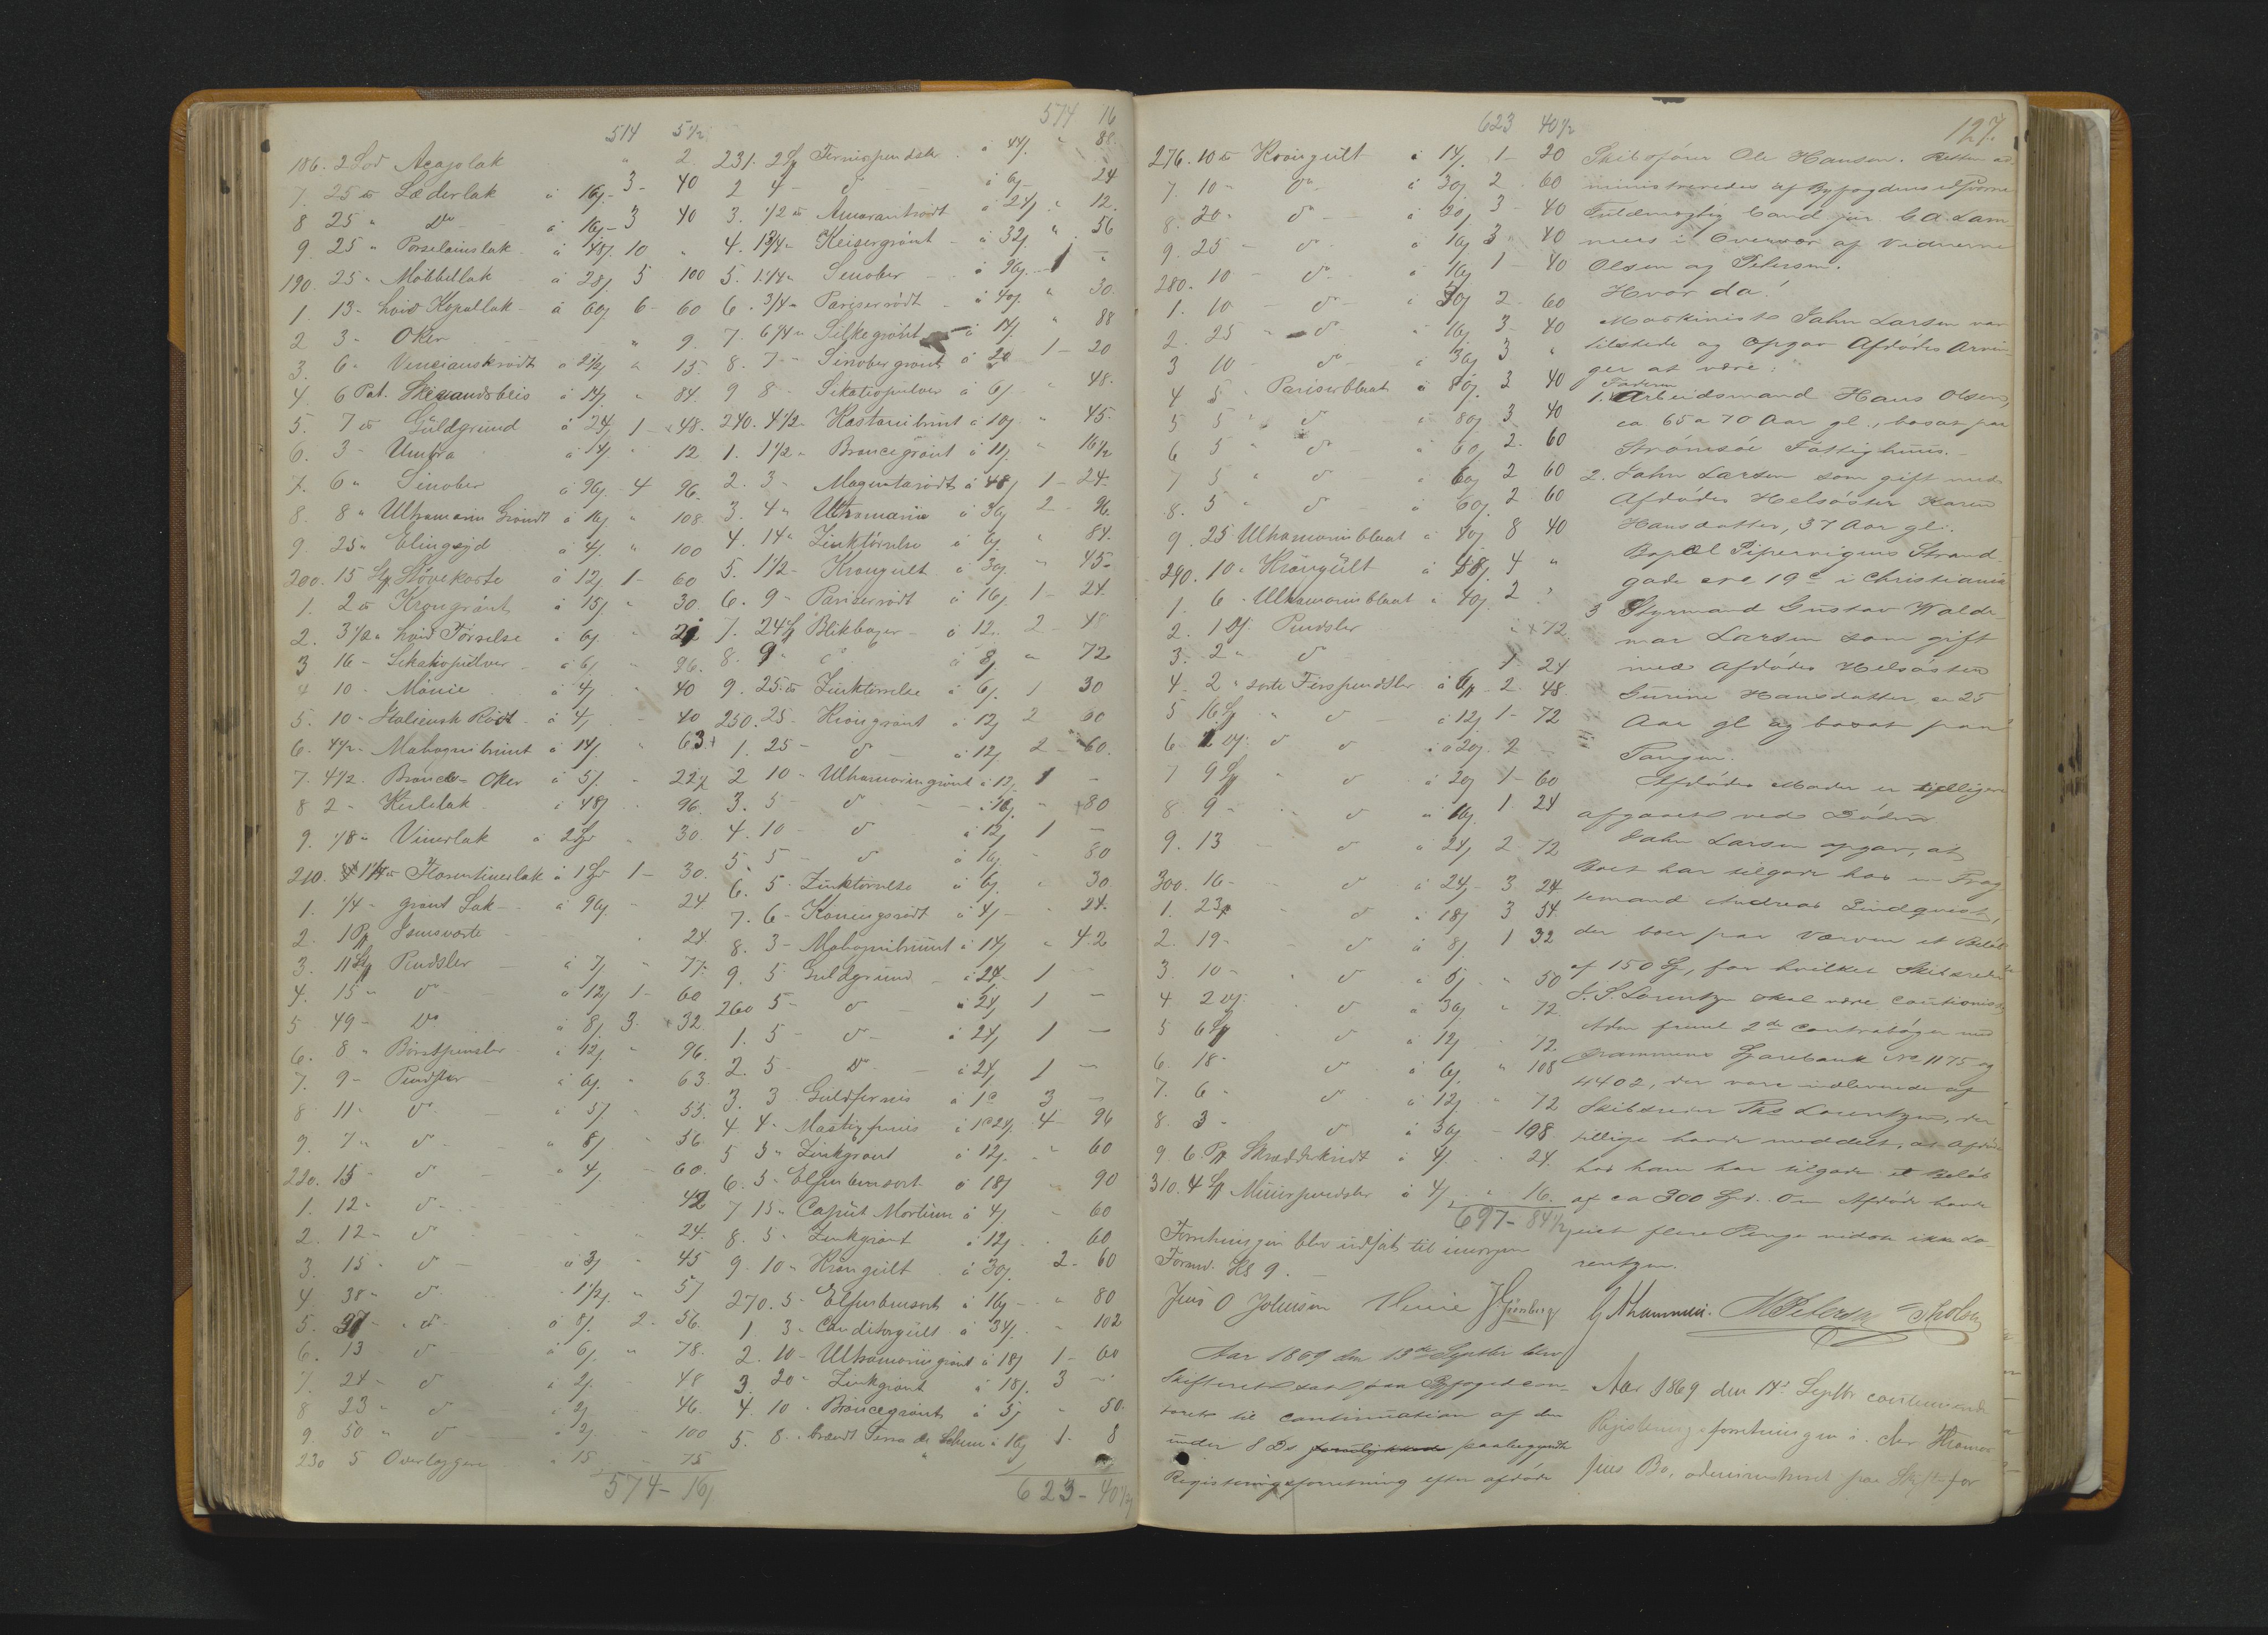 514 5 1/2
186. 2 Lod Acajolak " 2.
7. 25 " Læderlak à 16 3 - 40
8 25 " Do - à 16 - 3 40
9. 25 " Porselainslak à 48 10 "
190. 25 " Möbbellak à 28 5 100
1. 13 - hvid Kopallak - à 60 6 - 60
2 3 - Oker - " 9.
3. 6 " Venetianskrödt à 2 1/2 " 15.
4. 6 Pat. à 14 " 84.
5. 7 Guldgrund à 24 1 - 48.
6. 3 - Umbra à 4 " 12
7. 6 " Sinober à 96 - 4 96.
8. 8 " Ultramarin Gröndt à 16 " 108.
9. 25 " à 4 " 100
200. 15 Stövekoste à 12 1 - 60
1. 2 Krongrönt à 15 " 30.
2. 3 1/2 " hvid Törrelse à 6 " 21
3 16 - Sikativpulver à 6 " 96.
4 10 - Mönie à 4 " 40
5. 10 - Italiensk Rödt - à 4 - 40
6. 4 1/2 - Mahognibrunt à 14 " 63
7. 4 1/2 . Bronce - Oker à 5 " 22 1/2
8 2 - Kulelak à 48 " 96.
9. 1/8 " Vinerlak à 2 " 30.
210. 1 1/4 Florentinerlak à 1 1 - 30.
1. 1/4 - grönt Lak - à 96 " 24
2. 1 24.
3. 11 Pendsler - à 7 " 77.
4. 15 " do - à 12 1 - 60
5 49 - Do à 8 3. 32.
6. 8 " Börstpensler à 12 " 96.
7. 9 - Pendsler - à 7 " 63.
8 11 - do - à 5 " 55.
9. 7 " do - à 8 " 56
220. 15 - do - à 4 - 60.
1. 12 " do - 42
2. 12 - do 24.
3. 15 - do - à 3 45
4. 38 " do 1 1/2 " 57
5. do - à 8 2 - 56.
6. 13 - do à 6 " 78.
7. 24 - do à 2 - 48
8 23 " do à 2 - 46.
9. 50 " do - à 2 - 100
230 5 Overleggere à 15 - 75
574 - 16
574 16
231. 2 Fernispendsler à 44 " 88.
2 4 - do à 6 - 24
3. 1/2 Amarantrödt à 24 " 12.
4. 1 3/4 " Keisergrönt - à 32 " 56
5. 1 1/4 " Sinober - à 96 - 1 "
6. 3/4 " Pariserrödt - à 40 " 30.
7. 6 1/4 " Silkegrönt à 14 " 88
8. 7 " Sinobergrönt à 20 1 - 20
9 8 " Sikativpulver à 6 " 48.
240. 4 1/2 " Kastaniebrunt à 10 " 45.
1. 1 1/2 " Broncegrönt à 11 " 16 1/2
2. 3 " Magentarödt à 48 1 - 24.
3. 4 " Ultramarin à 36 2 - 96.
4. 14 " Zinktörrelse à 6 " 84.
5. 1 1/2 - Krongult à 30 " 45 -
6. 9 " Pariserrödt à 16 1 - 24.
7. 24 Blikbøger - à 12. 2 - 48
8. 9 " do à 8 " 72
9. 25 Zinktörrelse à 6 1 30
250. 25 - Krongrönt à 12 2 60
1. 25 - do - à 12 2 - 60.
2 10 " Ultramaringrönt à 12 1 -
3. 5 - do - à 16 - 80
4. 10 - do à 12 1 -
5. 5 - do à 16 - 80
6. 5 . Zinktörrelse à 6 " 30
7. 6 - Koningsrödt à 4 - " 24.
8. 3 - Mahognibrunt à 14 " 42
9. 5 Guldgrund - à 24 1 -
260 5 - do à 24 1 -
1. 5 - do - à 24 1 -
2. 5 - Do - à 24 1 -
3. 3 Guldfernis à 1 3 -
4 4 " Mastixfernis à 1 24 4 - 96
5 5 " Zinkgrönt à 12 " 60
6. 5 " Elfenbensort à 18 90
7. 15 " Caput Mortium à 4 - 60
8. 5 " Zinkgrönt à 12 . 60
9. 10 " Krongult à 30 2 - 60
270. 5 " Elfenbensort à 16 - " 80
1. 3 " Conditorgult à 34 . 102
2. 10 - Ultramaringrönt à 18 1 - 60
3. 20 " Zinkgrönt à 18 3 -
4. 10 . Broncegrönt à 5 " 50.
5. 8 . brændt Terra de Siena à 16 1 - 8
623 - 40 1/2
623 40 1/2
276. 10 Krongult à 14 1 - 20
7. 10 " do à 30 2 . 60
8. 20 " do - à 20 3 - 40
9. 25 - do à 16 3 40
280. 10 - do à 16 1 - 40
1. 10 - do - à 30 2 - 60
2. 25 " do à 16 3 - 40
3 10 - do à 36 3 "
4 5 " Pariserblaat à 80 3 40
5 5 " do à 80 3 40
6 5 " do à 60 2 . 60
7 5 " do à 60 2 60
8. 5 " do à 60 2 60
9. 25 Ultramarinblaat à 40 8 40
290. 10 " Krongult à 48 4 "
1. 6 - Ultramarinblaat à 40 2
2. 1 Pendsler " 72.
3. 2 " do 1. 24
4. 2 " sorte Fiirspendsler à 2 . 48
5 16 " do - à 12 1 - 72
6. do do à 20 . 2 -
7 9 " do à 20 1 - 60
8. 9 " do à 16 1 . 24
9. 13 do à 24 2 . 72
300. 16 - do à 24 - 3 24
1. 23 do à 18 3 54.
2. 19 - do à 8 1 32
3. 10 - do à 5 " 50
4 2 do à 36 " 72.
5 6 do à 12 . 72.
6. 18 " do à 6 " 108
7. 6 - do à 12 " 72
8. 3 - do à 36 - 108.
9. 6. Skrædderkridt à 4 . 24.
310. 4 Muurpendsler à 4 " 16.
697 - 84 1/2
Forretningen blev udsat til imorgen
Formd. Kl 9. -
Jens O Johnsen
Aar 1869 den 13de Septbr blev
Skifteret sat paa Byfogedcon-
toret til Continuation af den
under 8 Ds paabegyndte
Registeringsforretning efter afdöde
127.
Skibsförer Ole Hansen. Retten ad-
ministreredes af Byfogdens edsvorne
Fuldmægtig Cand. jur. C. A. Lam-
mers i Overvær af Vidnerne
Olsen og Petersen.
Hvor da!
Maskinist Jahn Larsen var
tilstede og opgav Afdødes Arvin-
ger at være:
Faderen
1. Arbeidsmand Hans Olsen,
ca 65 a 70 Aar gl., bosat paa
Strömsöe Fattighuus. -
2. Jahn Larsen som gift med
Afdödes Helsöster Karen
Hansdatter, 37 Aar gl.
Bopæl Pipervigens Strand-
gade No 19 c i Christiania
3 Styrmand Gustav Walde-
mar Larsen som gift
med Afdödes Helsöster
Gurine Hansdatter, 25
Aar gl og bosat paa
Tangen.
Afdödes Moder er tidligere
afgaaet ved Döden
Jahn Larsen opgav, at
Boet har tilgode hos en Frag-
temand Andreas Lindqvest,
der boer paa Værven et Beløb
af 150 Sp, for hvilket Skibsreder
J. S. Lorentzen skal være Cautionist
2de Contraböger med
Drammens Sparebank No 1175 og
4402, der vare indleverede af
Skibsreder Ths Lorentzen, der
tillige havde meddelt, at Afdöde
hos ham har tilgode et Beløb
af ca 300 Spd. Om Afdöde havde
eiet flere Penge vidste ikke Lo-
rentzen.
C A Lammers. M Petersen
Aar 1869 den 14de Septbr continueredes
Registeringsforretningen i
Bo, administreret paa Skifte for